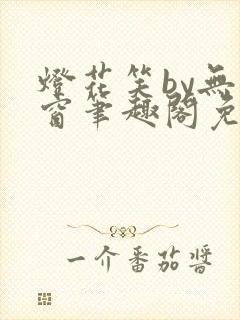 燈花笑by無
窗筆趣閣免
一介番茄醬